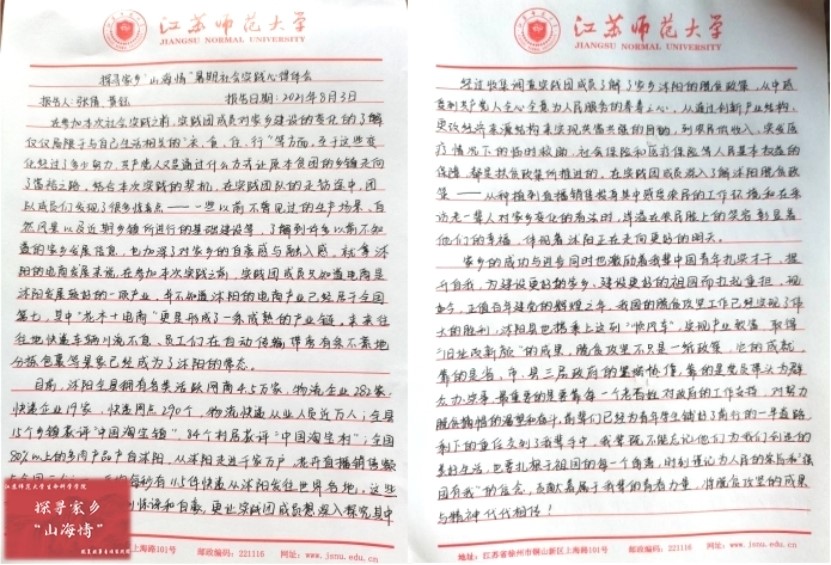 江苏师范大学
JIANGSU NORMAL UNIVERSITY
探寻家乡"山海情"暑期社会实践心得体会
报告人:张倩 报告日期:2021年8月3日
在参加本次社会实践之前,实践团成员对家乡建设的变化的了解
仅仅局限于与自己生活相关的"衣、食、住、行"等方面,至于这些变
化经过了多少努力,共产党人又是通过什么方式让原本贫困的乡镇走向
了富裕之路,结合本次实践的契机,在实践团队的走访途中,团
队成员们发现了很多惊喜点——一些以前不曾见过的生产场景、自
然风景以及近期乡镇所进行的基础建设等,了解到许多以前不知
道的家乡发展信息,也加深了对家乡的自豪感与融入感。就拿沭
阳的电商发展来说,在参加本次实践之前,实践团成员只知道电商是
沭阳发展较好的一项产业,并不知道沭阳的电商产业已经居于全国
第七,其中"花木+电商"更是形成了一条成熟的产业链。来来往
往地快递车辆川流不息,员工们在自动传输带旁有条不紊地
分拣包裹等景象已经成为了沭阳的常态。
目前,沭阳全县拥有各类活跃网商4.5万家,物流企业282家,
快递企业19家,快递网点290个,物流快递从业人员近万人;全县
15个乡镇获评"中国淘宝镇",84个村居获评"中国淘宝村";全国
80%以上的多肉产品产自沭阳,从沭阳走进千家万户,花卉直播销售额
每秒有11.5件快递从沭阳发往世界各地。这些
和自豪,更让实践团成员想深入探究其中
江苏师范大学生命科学学院
探寻家乡
"山海情"
上海路101号 邮政编码:221116 网址:www.jsnu.edu.cn
江苏师范大学
JIANGSU NORMAL UNIVERSITY
经过收集调查实践团成员了解了家乡沭阳的脱贫政策,从中感
受到共产党人全心全意为人民服务的奉献之心,从通过创新产业结构、
更改经济来源结构来实现共富共强的目的,到农民低收入、突发医
疗情况下的临时救助,社会保险和医疗保险等人民基本权益的
保障,都是扶贫政策所推进的。在实践团成员深入了解沭阳脱贫政
策——从种植到直播销售投身其中感受农民的工作环境和在采
访老一辈人对家乡变化的看法时,洋溢在农民脸上的笑容彰显着
他们的幸福,伴随着沭阳正在走向更好的明天。
家乡的成功与进步同时也激励着我辈中国青年扎实才干,提
升自我,为建设更好的家乡、建设更好的祖国而扛起重担。现
如今,正值百年建党的辉煌之年,我国的脱贫攻坚工作已经实现了伟
大的胜利,沭阳县也携乘上这列"顺风车",实现产业致富,取得
"旧址改新颜"的成果,脱贫攻坚不只是一项政策,它的成就,
靠的是省、市、县三层政府的紧密协作,靠的是党员带头为群
众办实事,最重要的是要靠每一个老百姓对政府的工作支持,对努力
脱贫的渴望和奋斗。前辈们已经为青年学生铺好了前行的一半道路,
剩下的重任交到了我辈手中,我辈既不能忘记他们为我们创造的
美好生活,也要扎根于祖国的每一个角落,时刻谨记为人民的宗旨和"强
国有我"的信念,贡献着属于我辈的青春力量,将脱贫攻坚的成果
与精神代代相传!
地址:江苏省徐州市铜山新区上海路101号 邮政编码:221116 网址:www.jsnu.edu.cn